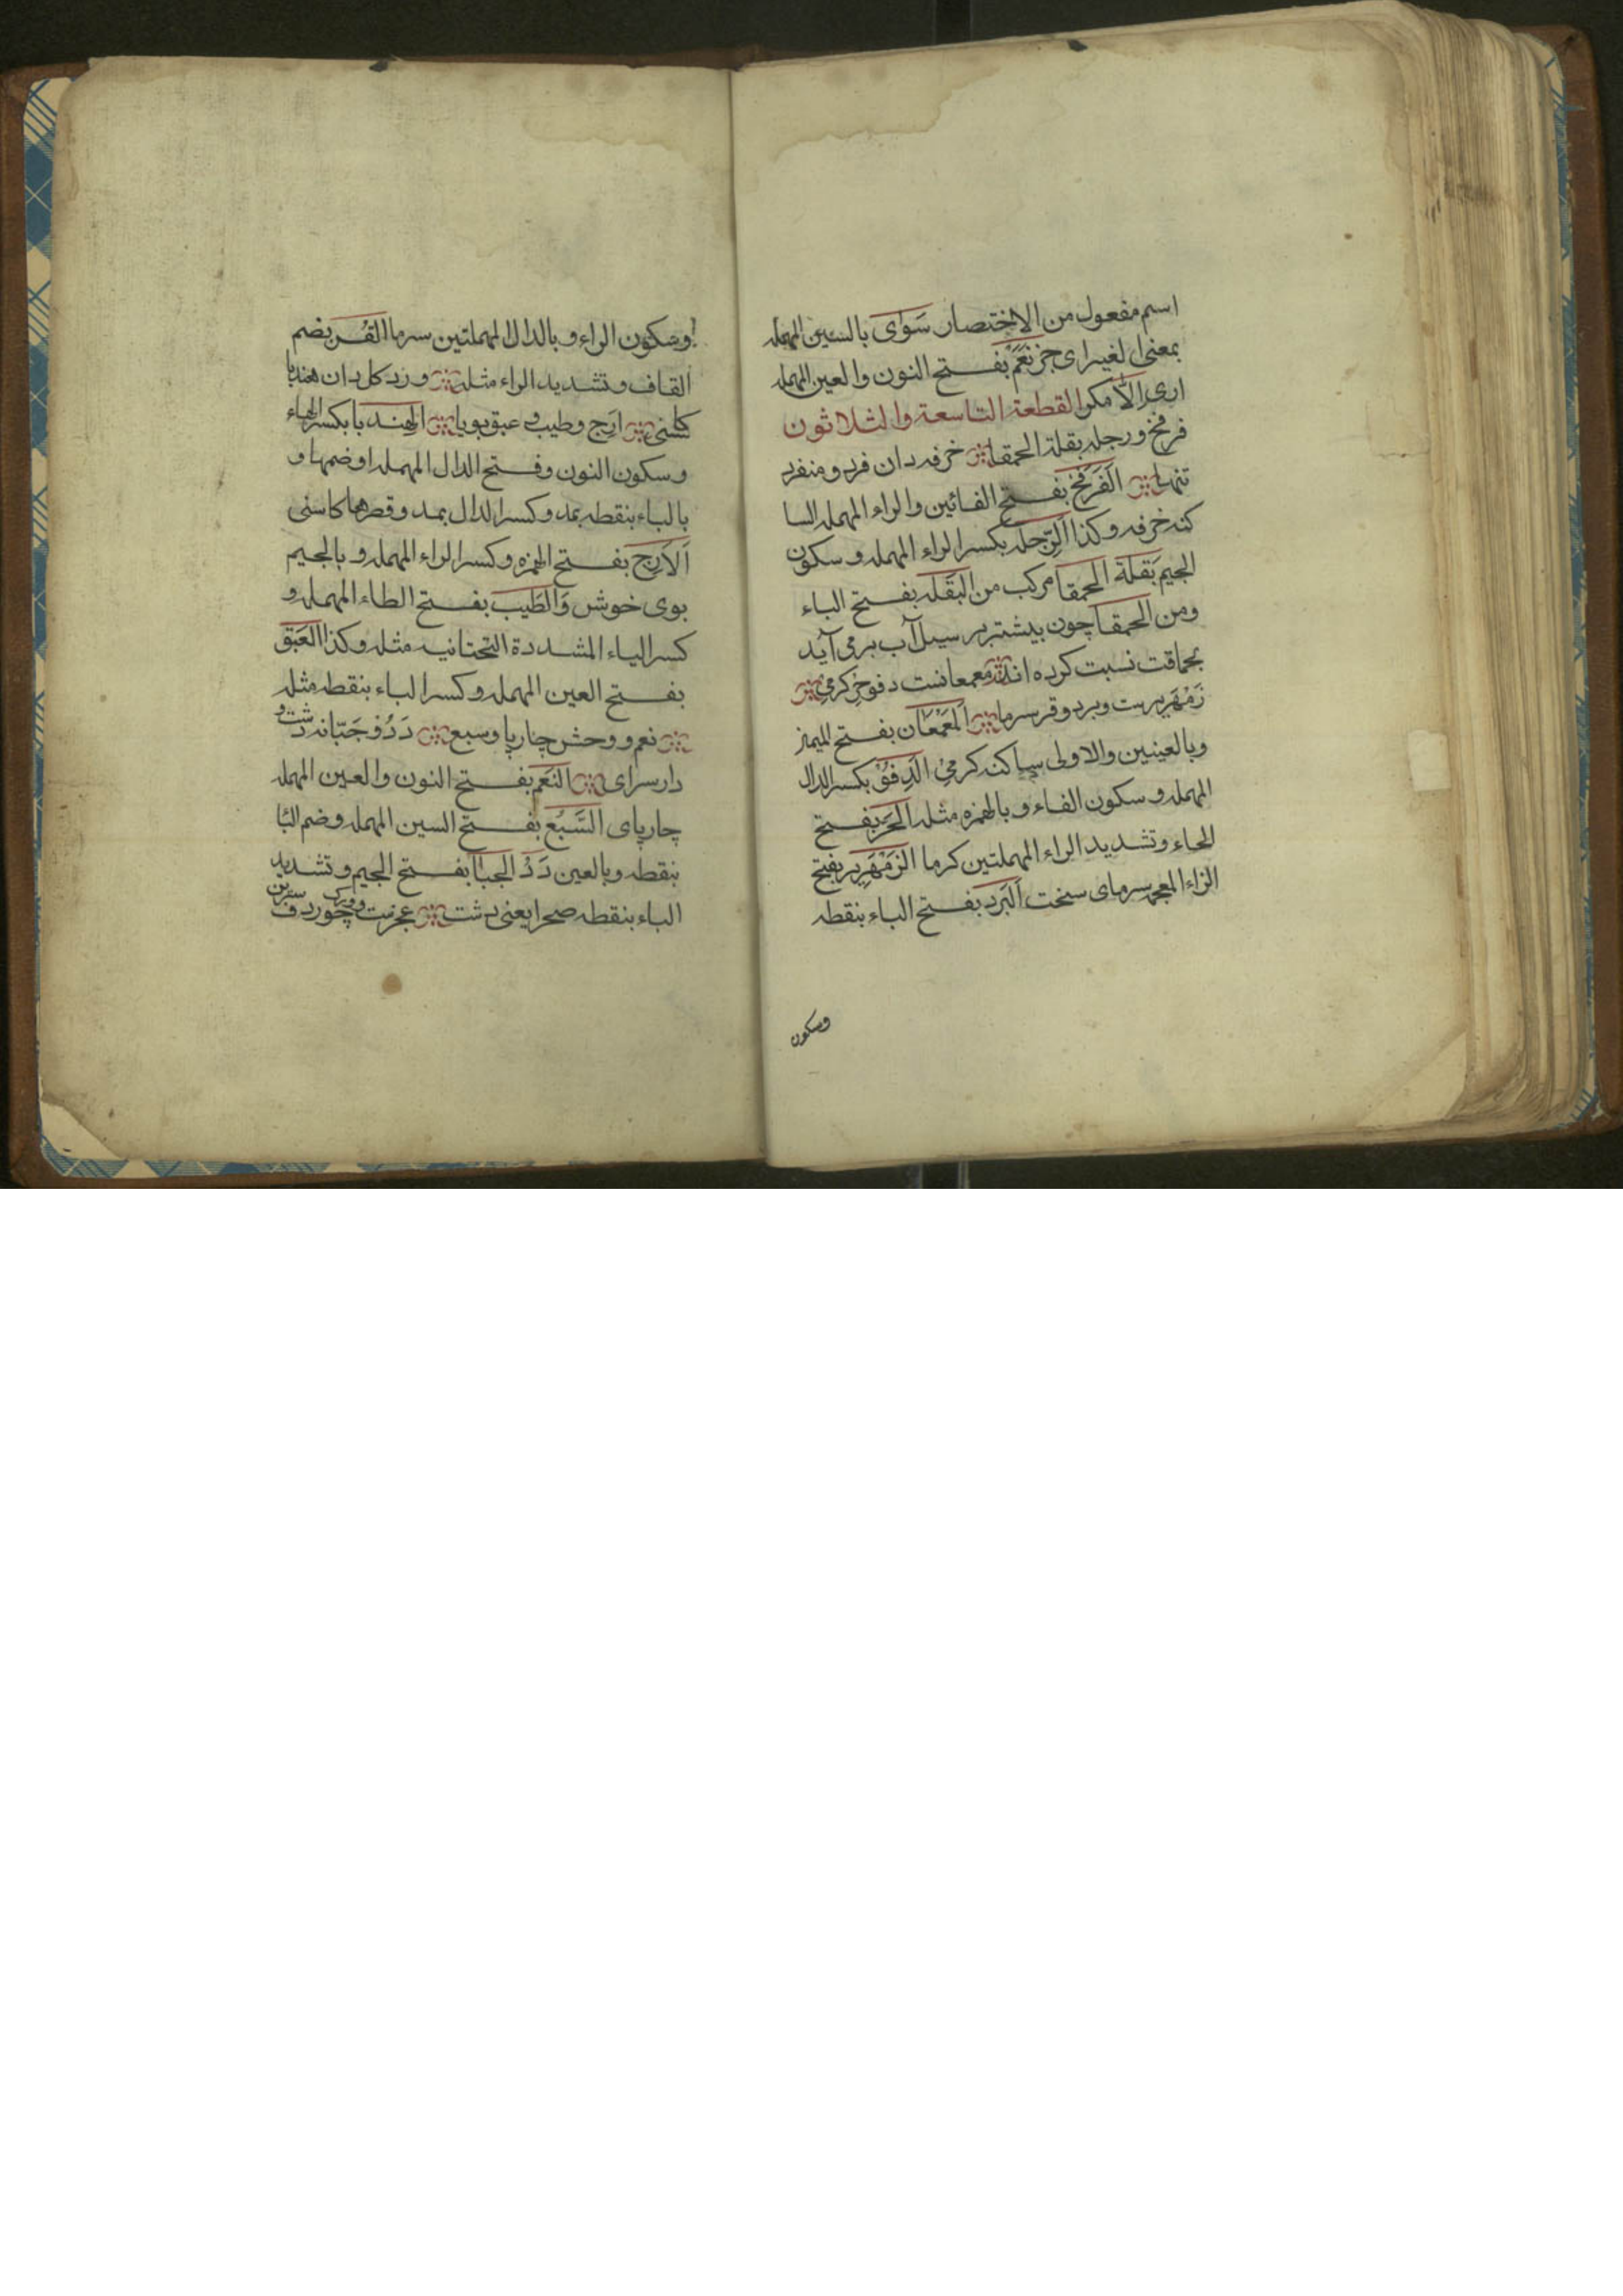 اسم مفعول من الاختصار سَوای بالسین المهمله
بمعنی لغیر ای جز نَعَمْ بفتح النون والعین المهمله
اری اِلّا مکر القطعة التاسعة والثلاثون
فرفخ و رجله بقلة الحمقا خرفه دان فرد و منفرد
تنها اَلفَرفَخ بفتح الفائین والراء المهمله السا
کنه خرفه و کذا الرِّجله بکسر الراء المهمله و سکون
الجیم بَقلَة الحمقا مرکب من البَقله بفتح الباء
ومن الحمقا چون بیشتر بر سیل آب برمی آید
بحماقت نسبت کرده اند معمعانست دفو حر کرمی
زَمْهَریرست و برد و قر سرما اَلمَعْمَعَان بفتح المیم
وبالعینین والاولی ساکنه کرمی الدِفؤ بکسر الدال
المهمله و سکون الفاء و بالهمزه مثله الحَرّ بفتح
الحاء و تشدید الراء المهملتین کرما الزَمْهَرِیر بفتح
الزاء المعجمه سرمای سخت اَلبَرد بفتح الباء بنقطه
وسکون
وسکون الراء و بالدال المهملتین سرما القُر بضم
القاف و تشدید الراء مثله ورد کل دان هندبا
کاسنی ارَج و طیب و عبق بویا الهِندَبا بکسر الهاء
و سکون النون و فتح الدال المهمله او ضمها و
بالباء بنقطه بمد و کسر الدال بمد و قصرها کاسنی
اَلاَرِج بفتح الهمزه و کسر الراء المهمله و بالجیم
بوی خوش وَالطَیب بفتح الطاء المهمله و
کسر الیاء المشددة التحتانیه مثله و کذا العَبَق
بفتح العین المهمله و کسر الباء بنقطه مثله
نعم و وحش چارپا و سبع دَدُ و جَبّانه دشت و
دار سرای النَعَم بفتح النون والعین المهمله
چارپای السَّبُع بفتح السین المهمله و ضم البا
بنقطه و بالعین دَدُ الجبا بفتح الجیم و تشدید
الباء بنقطه صحرا یعنی دشت عجزست و ورک چو ردف سرین